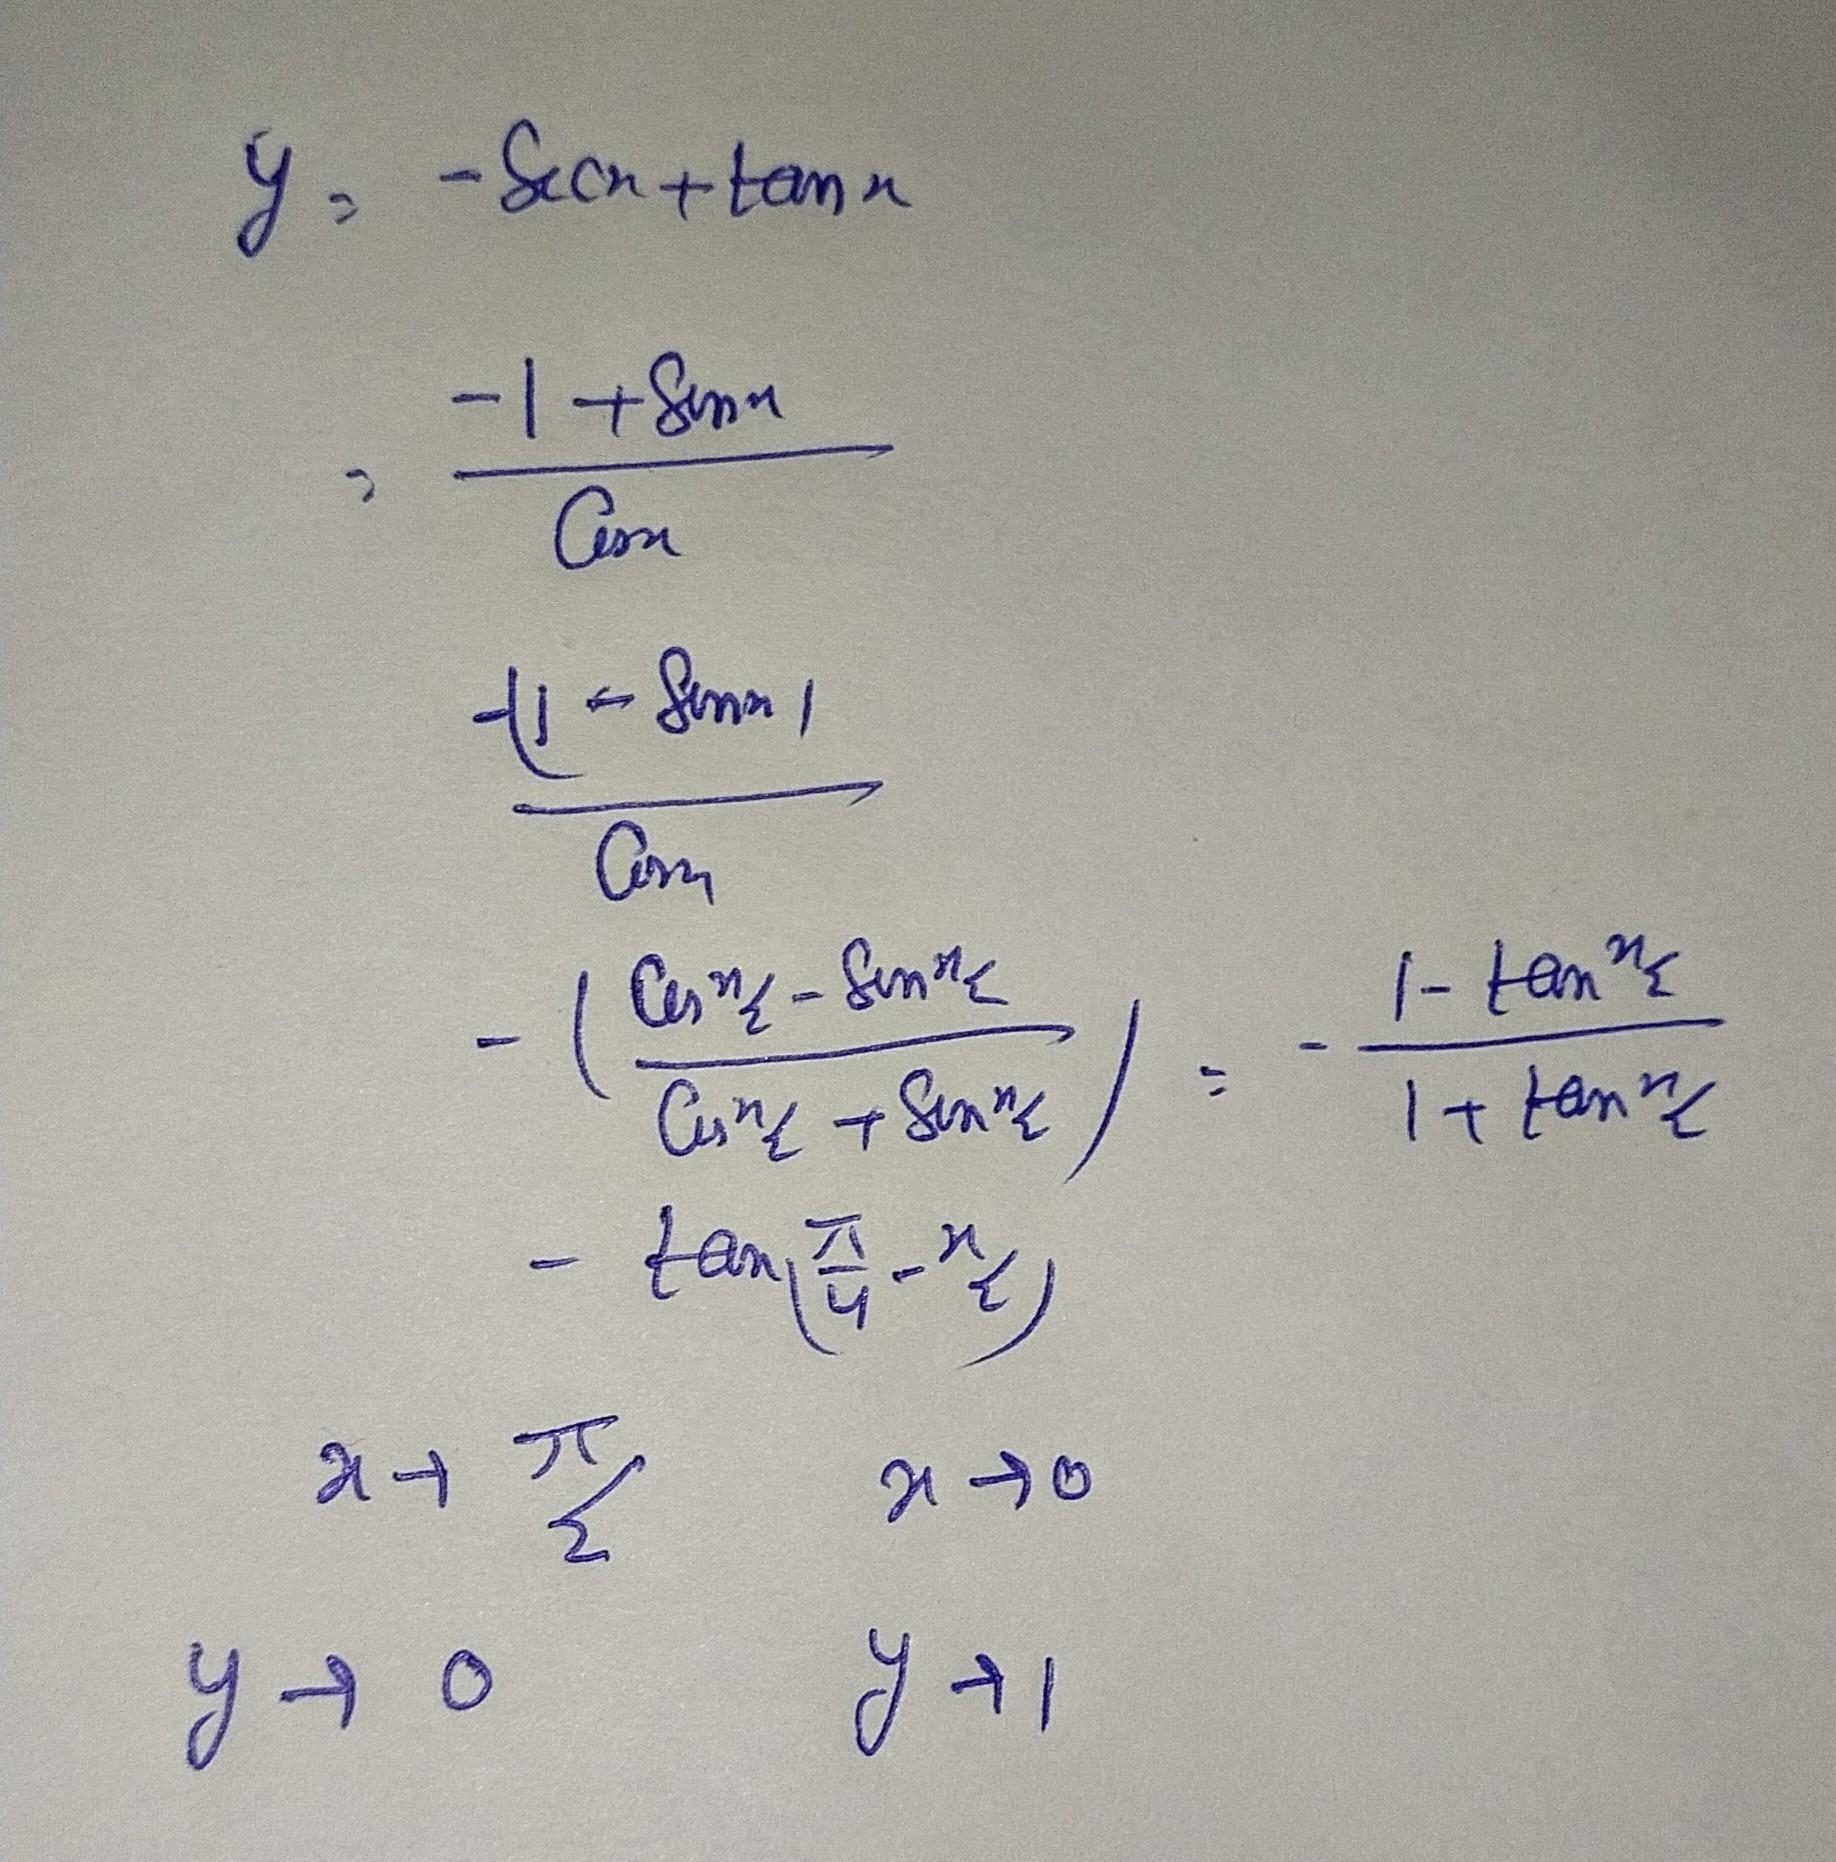 y = -Secx + tanx
= (-1 + Sinx) / Cosx
-(1 - Sinx) / Cosx
-((Cos x/2 - Sin x/2) / (Cos x/2 + Sin x/2)) = -(1 - tan x/2) / (1 + tan x/2)
- tan(π/4 - x/2)
x → π/2 x → 0
y → 0 y → 1